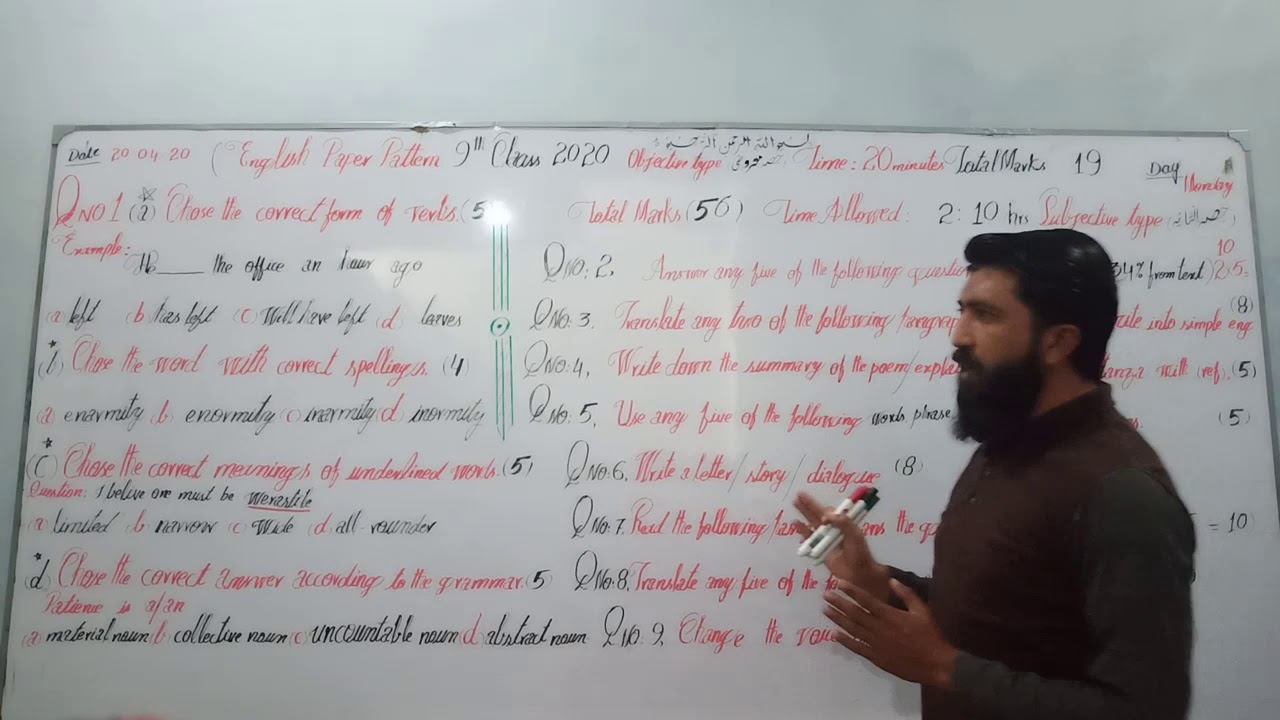 بسم الله الرحمن الرحيم
Date 20 04 20 ( English Paper Pattern 9th Class 2020 Objective type حصہ معروضی Time: 20 minutes Total Marks 19 Day Monday
Q NO 1 (a) Chose the correct form of verbs. (5)
Example:
He ____ the office an hour ago
(a) left (b) has left (c) Will have left (d) leaves
(b) Chose the word with correct spellings. (4)
(a) enarmity (b) enormity (c) inarmity (d) inormity
(c) Chose the correct meanings of underlined words. (5)
Question: I belive one must be Werastile
(a) limited (b) narrow (c) Wide (d) all-rounder
(d) Chose the correct answer according to the grammar. (5
Patience is a/an
(a) material noun (b) collective noun (c) uncountable noun (d) abstract noun
Total Marks (56) Time Allowed: 2:10 hrs Subjective type
Q NO: 2. Answer any five of the following question 34% from text) 2x5= 10
Q NO: 3. Translate any two of the following into simple eng (8)
Q NO: 4. Write down the summary of the poem/ with (ref). (5)
Q NO: 5. Use any five of the following words, phrase (5)
Q NO: 6. Write a letter/ story/ dialogue (8)
Q NO: 7. Read the following the = 10
Q NO: 8. Translate any five of the
Q NO: 9. Change the